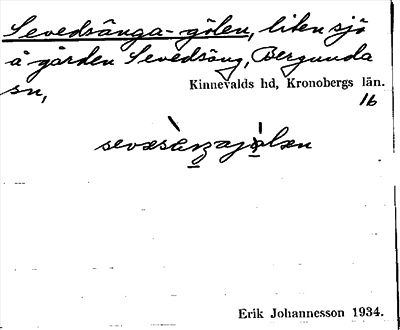 Sevedsänga-gölen, liten sjö
å gården Sevedsäng, Bergunda
Kinnevalds hd, Kronobergs län.
sn,
16
Erik Johannesson 1934.